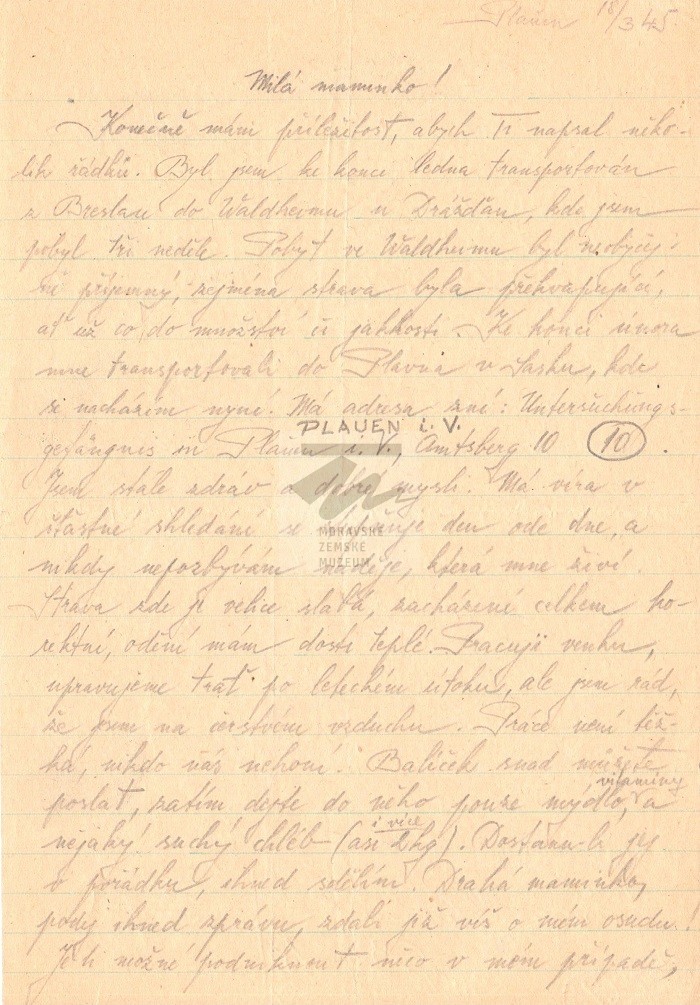 Plauen 18/3 45.
Milá maminko!
Konečně mám příležitost, abych Ti napsal něko-
lik řádků. Byl jsem ke konci ledna transportován
z Breslau do Waldheimu u Drážďan, kde jsem
pobyl tři neděle. Pobyt ve Waldheimu byl neobyčej-
ně příjemný, zejména strava byla překvapující,
ať už co do množství či jakkosti. Ke konci února
mne transportovali do Plavna v Sasku, kde
se nacházím nyní. Má adresa zní: Untersuchungs-
PLAUEN i. V.
gefängnis in Plauen i. V., Amtsberg 10 10.
Jsem stále zdráv a dobré mysli. Má víra v
šťastné shledání se den ode dne, a
nikdy nepozbývám naděje, která mne živí.
MORAVSKÉ
ZEMSKÉ
MUZEUM
Strava zde je velice slabá, zacházení celkem ko-
rektní, odění mám dosti teplé. Pracuji venku,
upravujeme trať po leteckém útoku, ale jsem rád,
že jsem na čerstvém vzduchu. Práce není těž-
ká, nikdo nás nehoní. Balíček snad můžete
vitaminy
poslat, zatím dejte do něho pouze mýdlo, a
nějaký suchý chléb (asi 2kg). Dostanu-li jej
i více
v pořádku, ihned sdělím. Drahá maminko,
podej ihned zprávu, zdali již víš o mém osudu!
Je li možné podniknout něco v mém případě,